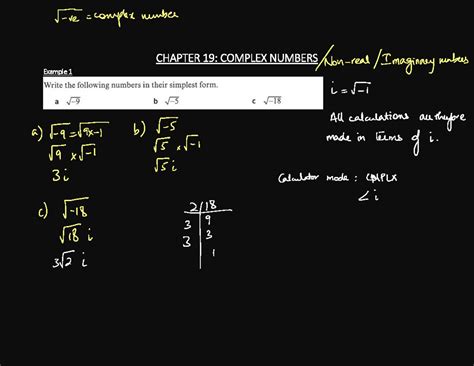 √-ve = complex number
CHAPTER 19: COMPLEX NUMBERS / Non-real / Imaginary numbers
Example 1
Write the following numbers in their simplest form.
a √-9 b √-5 c √-18
i = √-1
All calculations are therefore
made in terms of i.
a) √-9 = √9x-1
√9 x √-1
3i
b) √-5
√5 x √-1
√5 i
Calculator mode : CMPLX
∠ i
c) √-18
√18 i
3√2 i
2 | 18
3 | 9
3 | 3
1